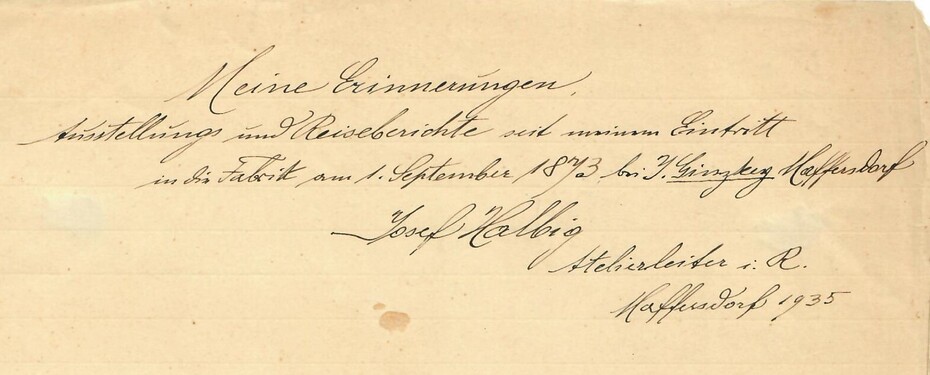 Meine Erinnerungen,
Ausstellungs und Reiseberichte seit meinem Eintritt
in die Fabrik am 1. September 1873 bei J. Ginzkey Maffersdorf
Josef Halbig
Atelierleiter i. R.
Maffersdorf 1935